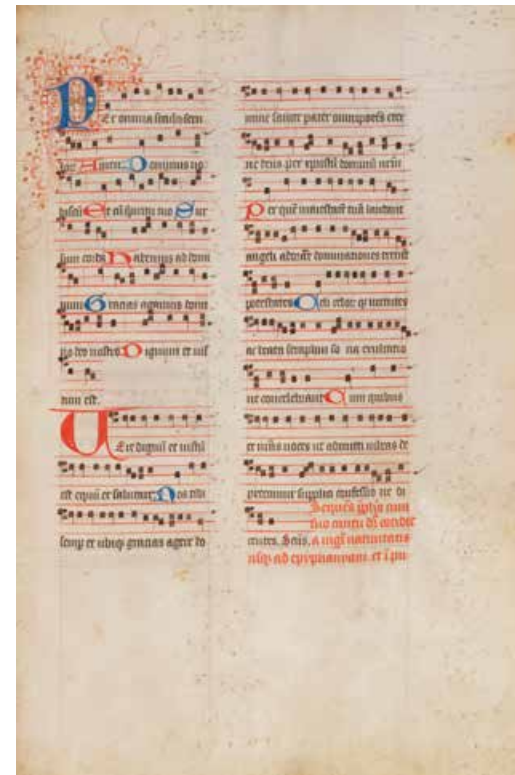 Per omnia secula secu
lor Amen Dominus vo
biscū Et cū spiritu tuo Sur
sum corda Habemus ad domi
num Gracias agamus domi
no deo nostro Dignum et ius
tum est.
Vere dignū et iustū
est equū et salutare Nos tibi
semp et ubiqz gracias agere do
mine sancte pater omnipotēs eter
ne deus per xpistū dominū nrm̄
Per quē maiestatē tuā laudant
angeli adorāt dominationes tremūt
potestates Celi celor qz virtutes
ac beata seraphin so cia exultatio
ne concelebrant Cum quibus
et nrās voces ut admitti iubeas de
precamur supplici confessiōe di
centes. Scūs.
Sequēs
suo cantu
a
usqz ad epyphaniam. et ī